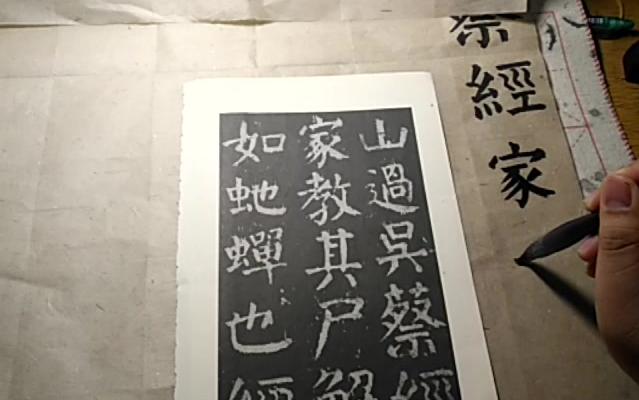 蔡經家
山過吳蔡經
家教其尸解
如虵蟬也經